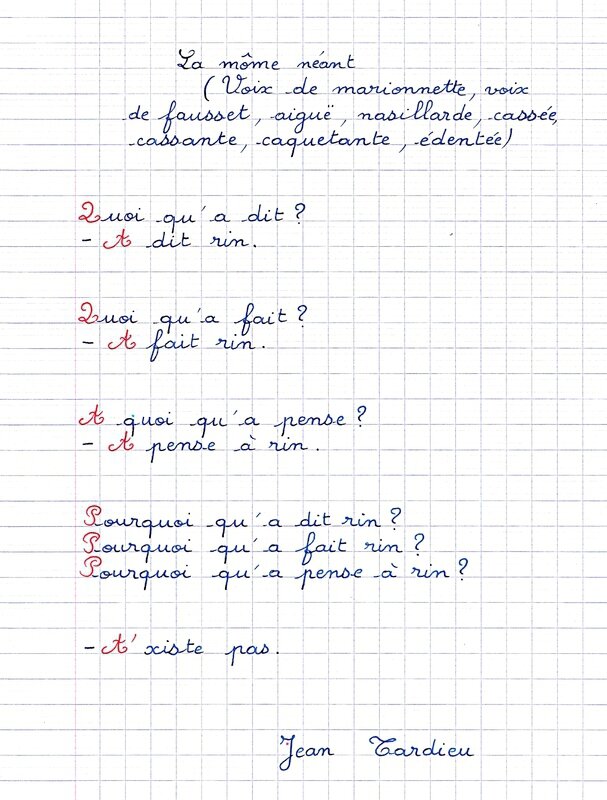 La môme néant
(Voix de marionnette, voix
de fausset, aiguë, nasillarde, cassée,
cassante, caquetante, édentée)
Quoi qu'a dit ?
- A dit rin.
Quoi qu'a fait ?
- A fait rin.
A quoi qu'a pense ?
- A pense à rin.
Pourquoi qu'a dit rin ?
Pourquoi qu'a fait rin ?
Pourquoi qu'a pense à rin ?
- A'xiste pas.
Jean Tardieu